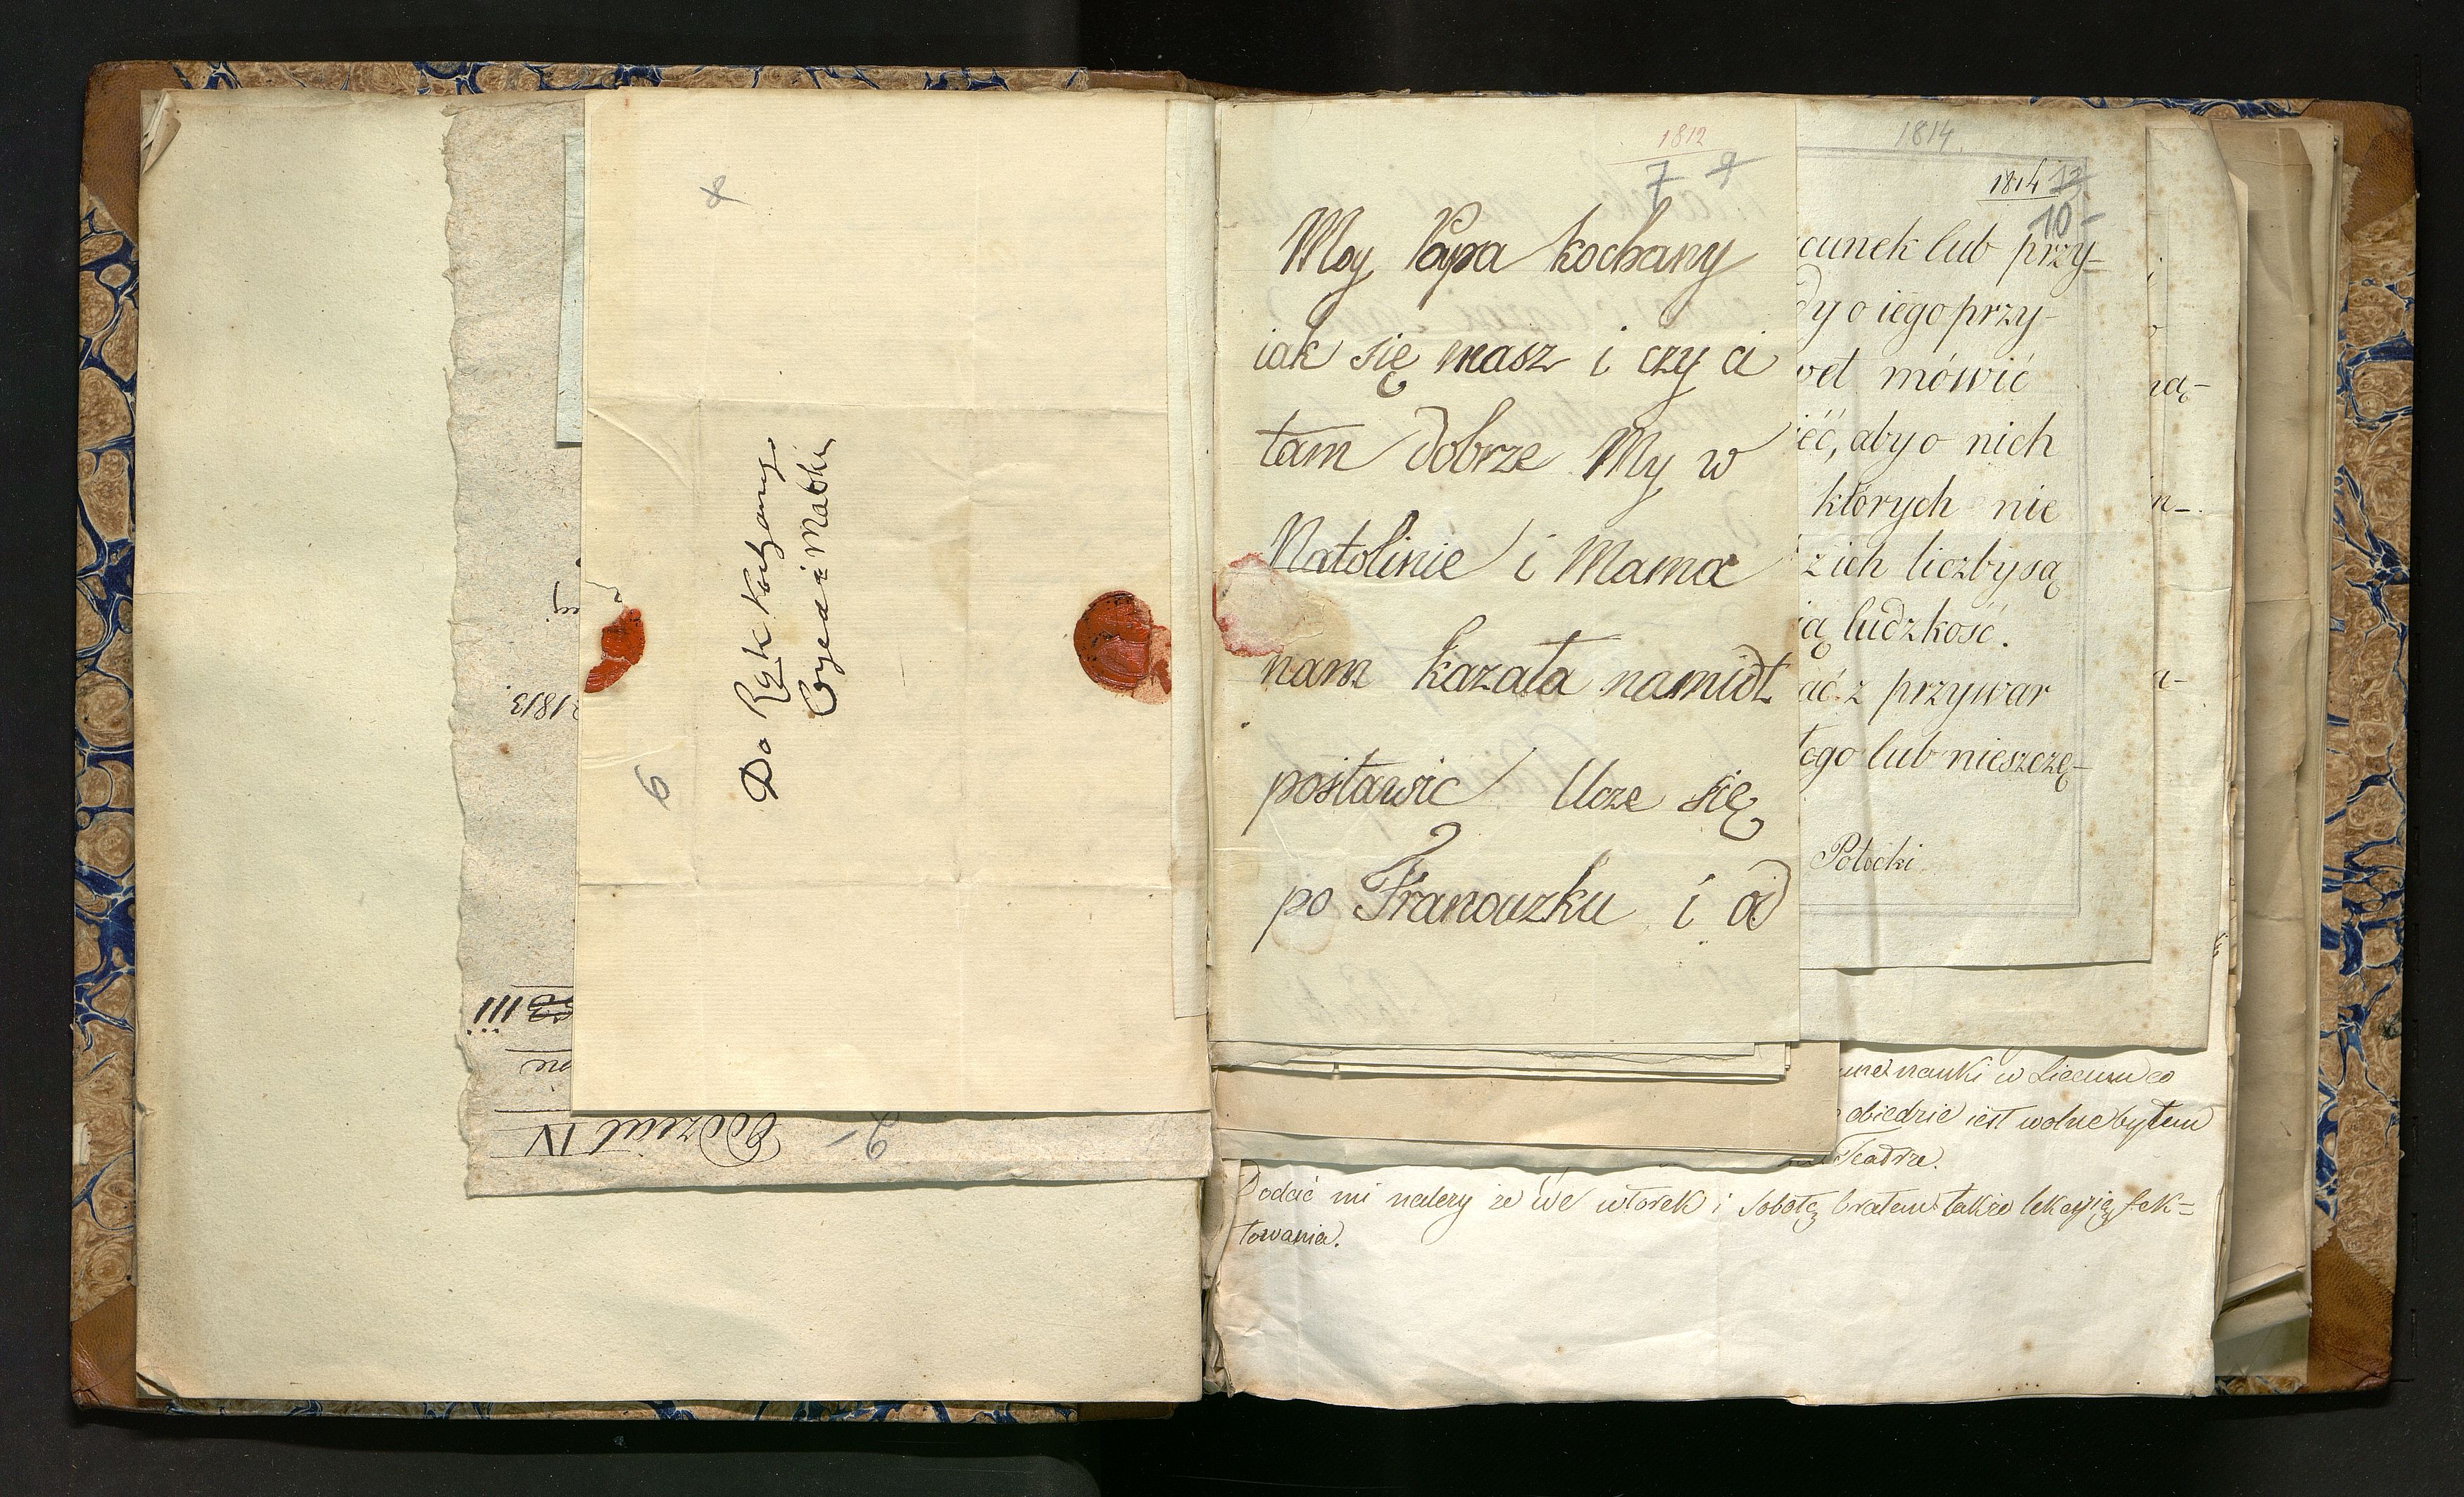 8
Do Rąk Kochanego
Oyca i Matki
6
1813
3 III
nie
Oddział IV
2-
1812
7 9
Moy Papa kochany
iak się masz i czy ci
tam dobrze My w
Natolinie i Mama
nam kazała namiot
postawic Ucze się
po Francuzku i od
1814
1814 13
10-
cunek lub przy-
dy o iego przy-
wet mówić
ieć, aby o nich
których nie
z ich liczby są
ią ludzkość.
ać z przywar
tego lub nieszczę-
Potocki
ną-
n-
a-
nauki w Liceum co
obiedzie iest wolne bytem
Teatrze.
Dodać mi należy że we wtorek i Sobotę brałem także lekcyią fek=
towania.